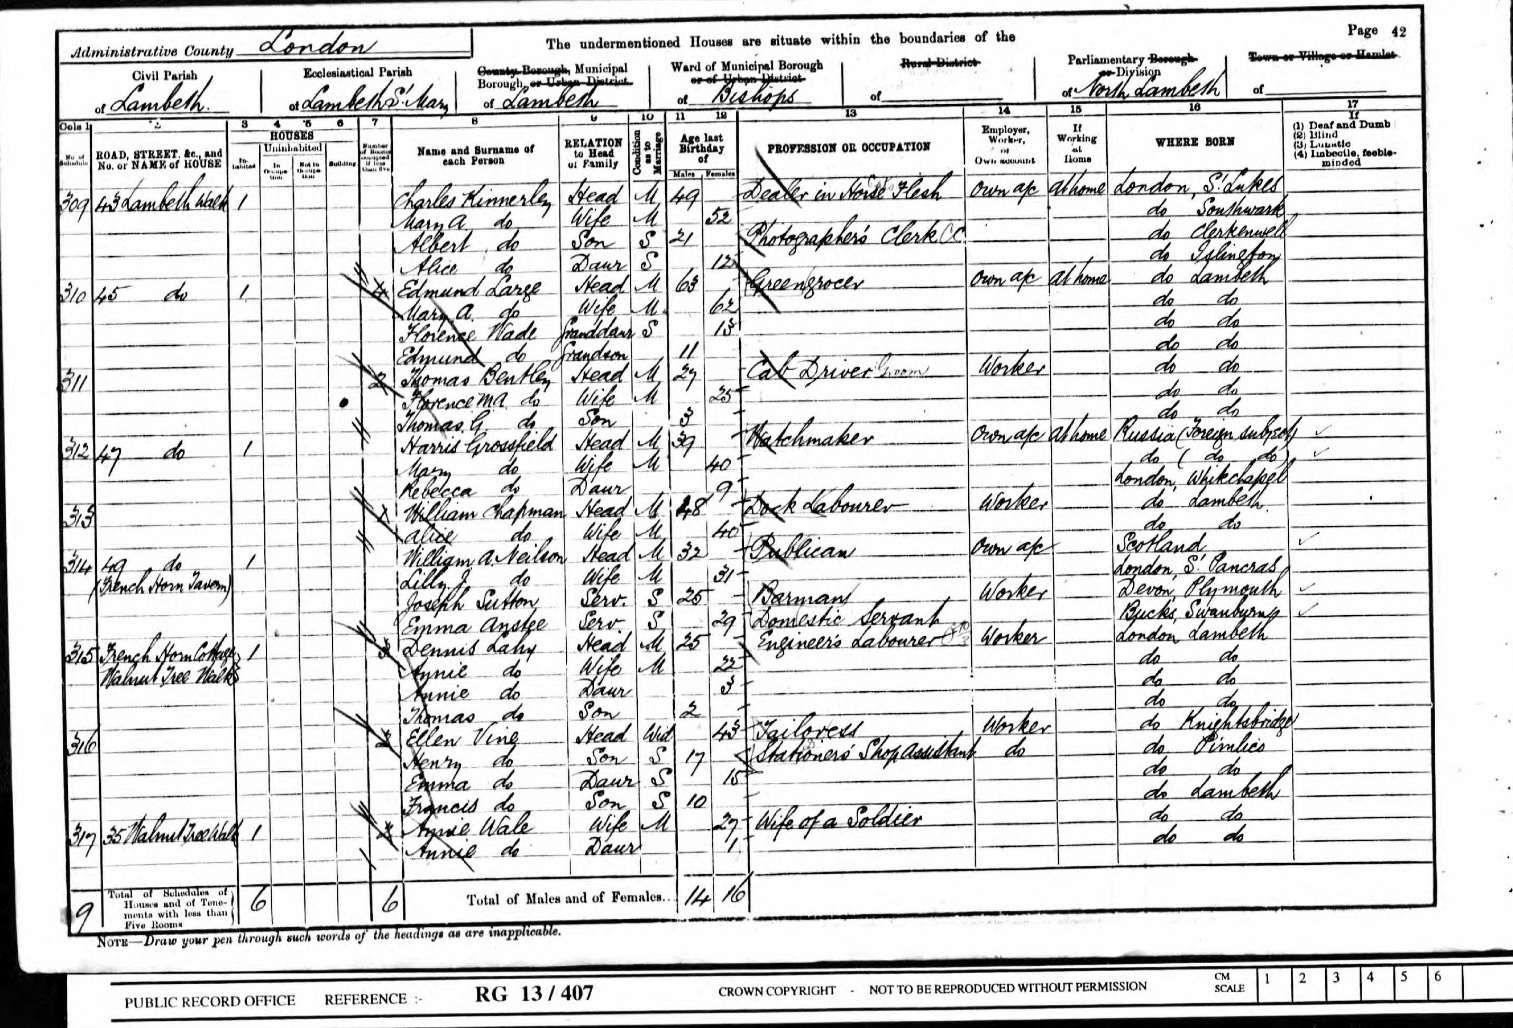 Page 42
Administrative County London
The undermentioned Houses are situate within the boundaries of the
Civil Parish of Lambeth.
Ecclesiastical Parish of Lambeth St Mary
County Borough, Municipal Borough, or Urban District of Lambeth
Ward of Municipal Borough or of Urban District of Bishops
Rural District of
Parliamentary Borough or Division of North Lambeth
Town or Village or Hamlet of
Cols 1 2 3 4 5 6 7 8 9 10 11 12 13 14 15 16 17
No. of Schedule
ROAD, STREET, &c., and No. or NAME of HOUSE
HOUSES
Inhabited
Uninhabited
In Occupation
Not in Occupation
Building
Number of Rooms occupied if less than five
Name and Surname of each Person
RELATION to Head of Family
Condition as to Marriage
Age last Birthday of
Males Females
PROFESSION OR OCCUPATION
Employer, Worker, or Own account
If Working at Home
WHERE BORN
If
(1) Deaf and Dumb
(2) Blind
(3) Lunatic
(4) Imbecile, feeble-minded
309 43 Lambeth Walk 1 Charles Kinnerley Head M 49 Dealer in Horse Flesh Own a/c At home London, St Lukes
Mary A. do Wife M 52 do Southwark
Albert do Son S 21 Photographer's Clerk do Clerkenwell
Alice do Daur S 12 do Islington
310 45 do 1 4 Edmund Large Head M 63 Greengrocer Own a/c At home do Lambeth
Mary A. do Wife M 62 do do
Florence Wade Granddaur S 13 do do
Edmund do Grandson 11 do do
311 2 Thomas Bentley Head M 27 Cab Driver Groom Worker do do
Florence M A do Wife M 25 do do
Thomas G. do Son 3 do do
312 47 do 1 Harris Grossfield Head M 39 Watchmaker Own a/c At home Russia (Foreign subject)
Mary do Wife M 40 do ( do do )
Rebecca do Daur 9 London, Whitechapel
313 1 William Chapman Head M 48 Dock Labourer Worker do Lambeth
Alice do Wife M 40 do do
314 49 do 1 William A. Neilson Head M 32 Publican Own a/c Scotland
(French Horn Tavern) Lilly J. do Wife M 31 London, St Pancras
Joseph Sutton Serv. S 25 Barman Worker Devon, Plymouth
Emma Anstee Serv S 29 Domestic Servant Bucks, Swanburne
315 French Horn Cottage 1 3 Dennis Lahy Head M 25 Engineer's Labourer Worker London, Lambeth
Walnut Tree Walk Annie do Wife M 22 do do
Annie do Daur 3 do do
Thomas do Son 2 do do
316 2 Ellen Vine Head Wid 43 Tailoress Worker do Knightsbridge
Henry do Son S 17 Stationers' Shop Assistant do do Pimlico
Emma do Daur S 15 do do
Francis do Son S 10 do Lambeth
317 35 Walnut Tree Walk 1 2 Annie Wale Wife M 27 Wife of a Soldier do do
Annie do Daur 1 do do
9 Total of Schedules of Houses and of Tenements with less than Five Rooms 6 6 Total of Males and of Females... 14 16
NOTE—Draw your pen through such words of the headings as are inapplicable.
PUBLIC RECORD OFFICE REFERENCE :- RG 13/407 CROWN COPYRIGHT - NOT TO BE REPRODUCED WITHOUT PERMISSION CM SCALE 1 2 3 4 5 6